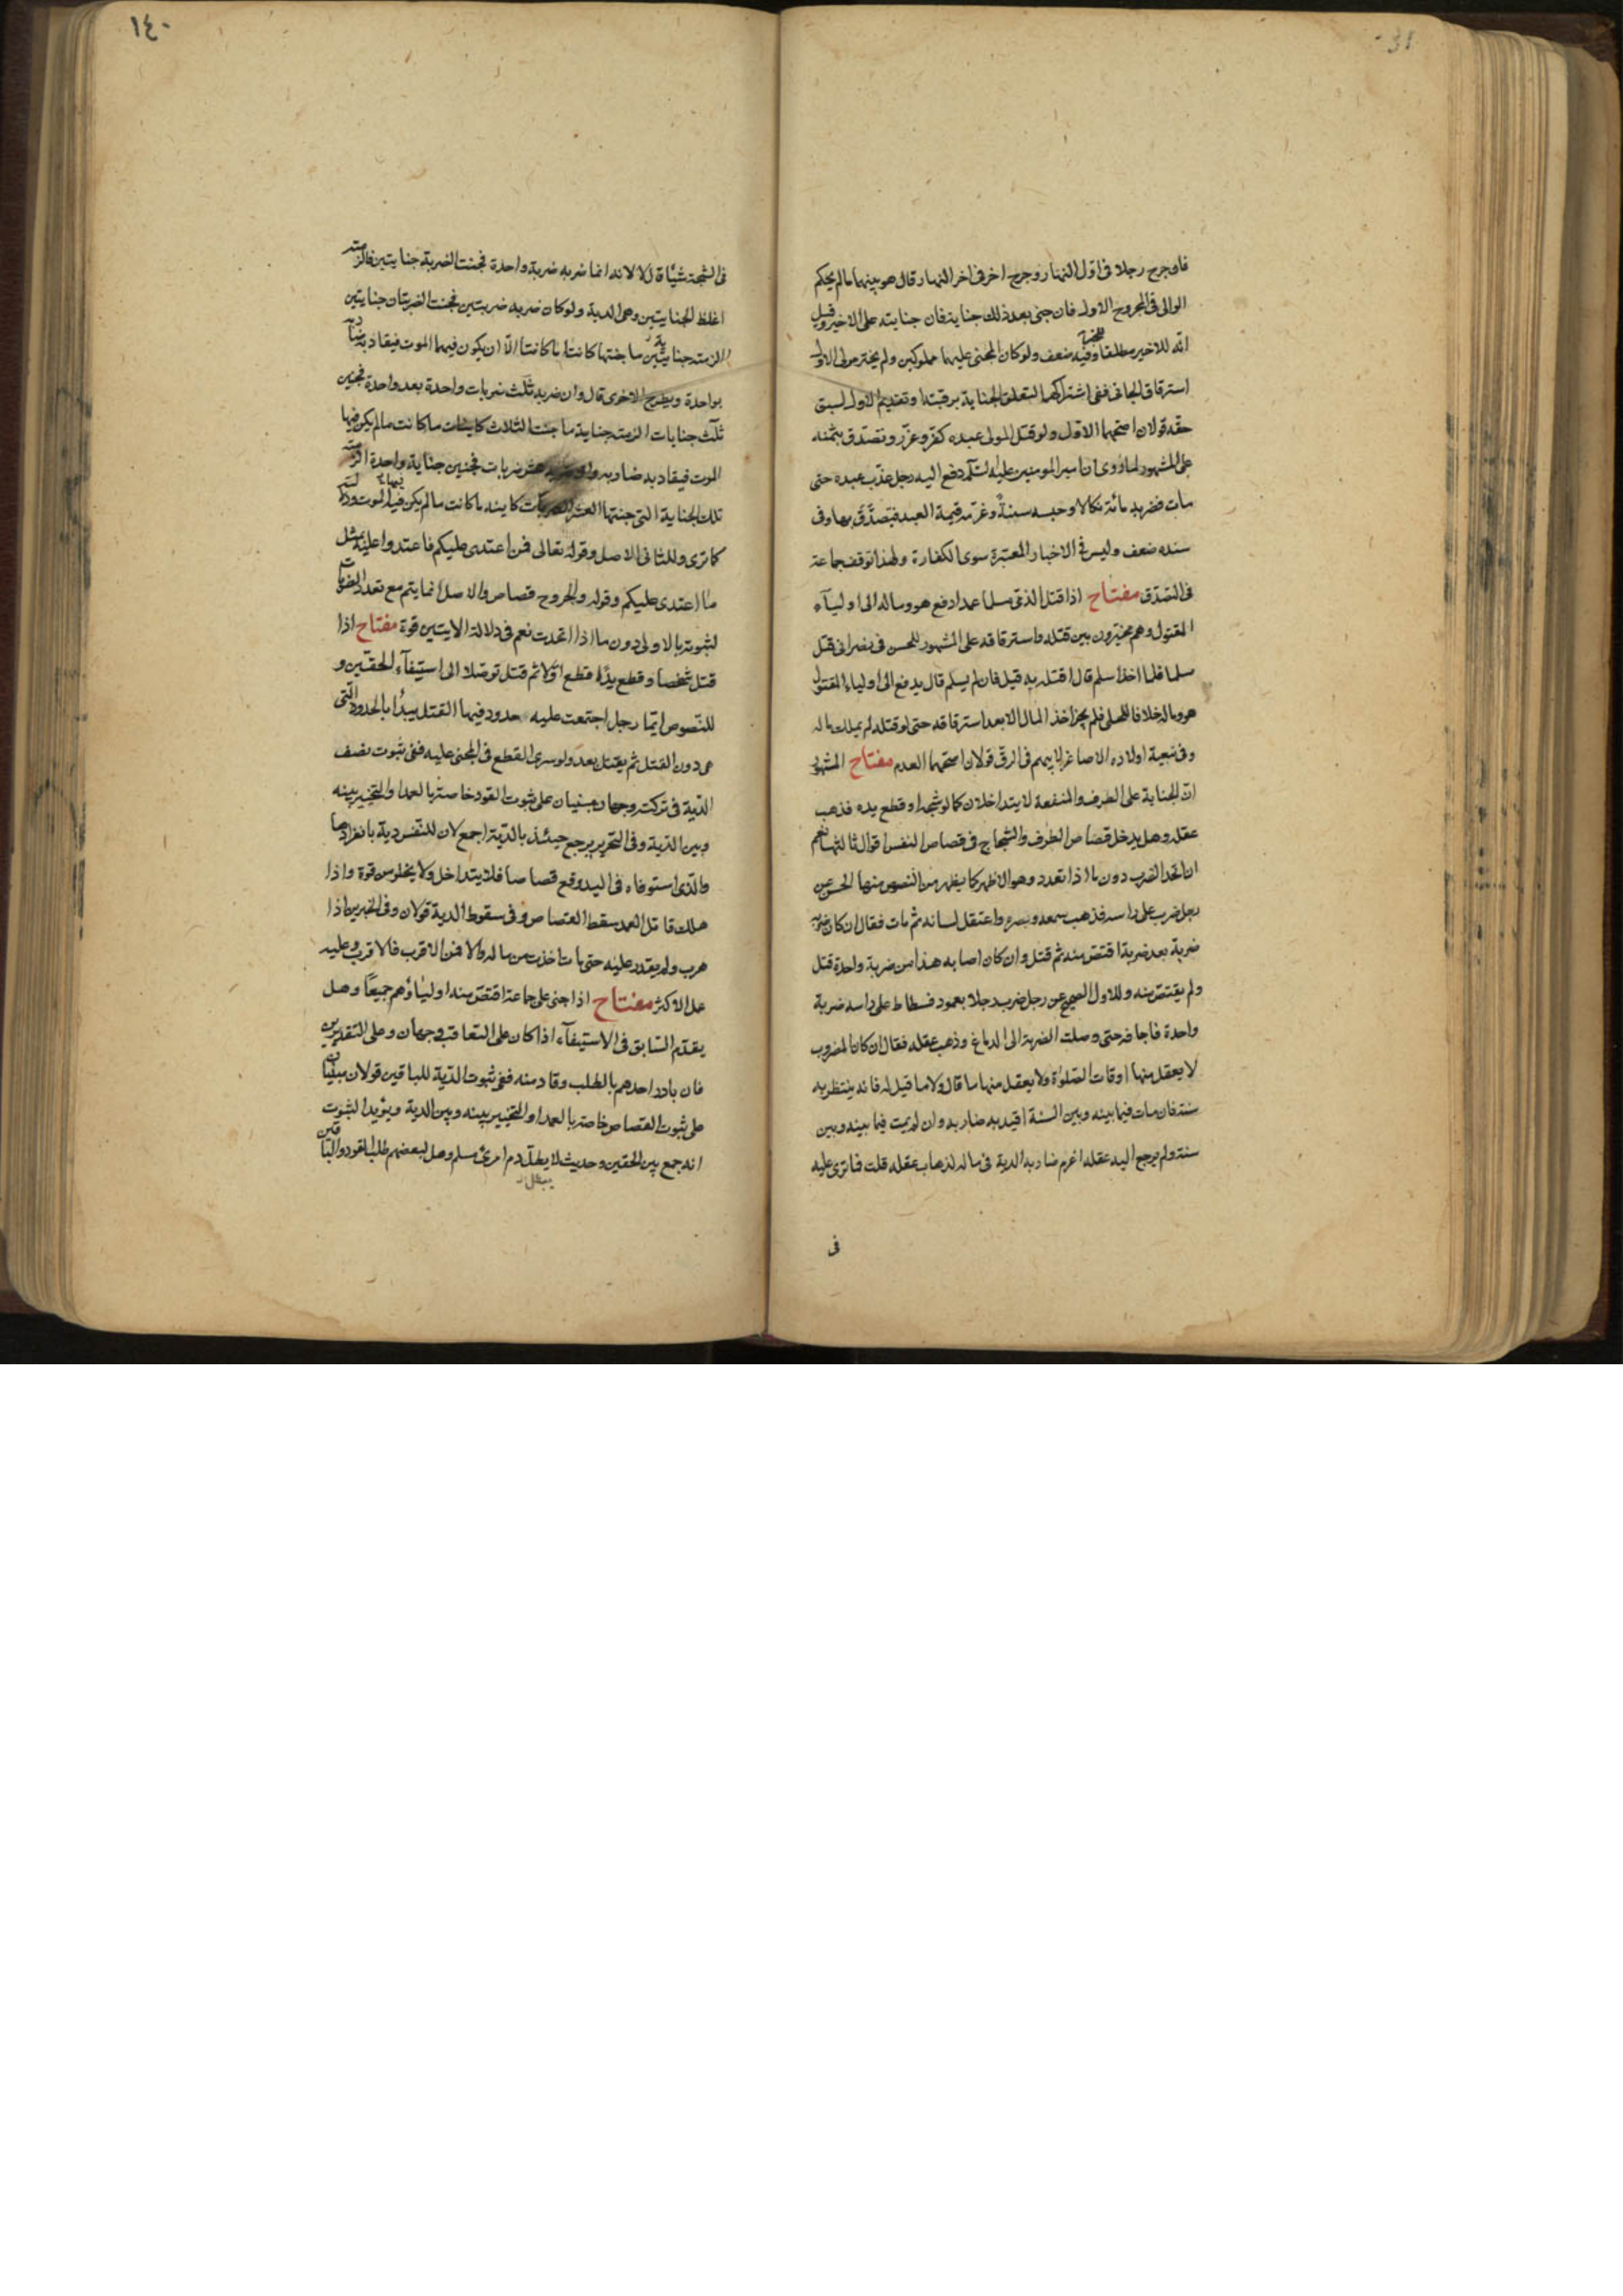 فاوجرح رجلا فى اول النهار وجرح اخر فى اخر النهار قال هو بينهما ما لم يحكم
الوالى فى المجروح الاول فان جنى بعد ذلك جناية فان جنايته على الاخير وقيل
انه للاخير مطلقا وفيه ضعف ولو كان المجنى عليهما مملوكين ولم يختر مولى الاول
استرقاق الجانى ففى اشتراكهما لتعلق الجناية برقبته او تقديم الاول لسبق
حقه قولان اصحهما الاول ولو قتل المولى عبده كفر وعزر وتصدق بثمنه
على المشهور لما روى ان امير المومنين عليه السلم رفع اليه رجل عذب عبده حتى
مات فضربه مائة نكالا وحبسه سنة وغرمه قيمة العبد فتصدق بها وفى
سنده ضعف وليس فى الاخبار المعتبرة سوى الكفارة ولهذا توقف جماعة
فى التصدق مفتاح اذا قتل الذمى مسلما عمدا دفع هو وماله الى اوليآء
المقتول وهم مخيرون بين قتله واسترقاقه على المشهور للحسن فى نصرانى قتل
مسلما فلما اخذ اسلم قال اقتله به قيل فان لم يسلم قال يدفع الى اولياء المقتول
هو وماله خلافا للحلى فلم يجز اخذ المال الا بعد استرقاقه حتى لو قتله لم يملك ماله
وفى تبعية اولاده الاصاغر لابيهم فى الرق قولان اصحهما العدم مفتاح المشهور
ان الجناية على الطرف والمنفعة لا يتداخلان كما لو شجه او قطع يده فذهب
عقله وهل يدخل قصاص الطرف والشجاج فى قصاص النفس اقوال ثالثها نعم
ان اتحد الضرب دون ما اذا تعدد وهو الاظهر كما يظهر من النصوص منها الحسن عن
رجل ضرب على راسه فذهب سمعه وبصره واعتقل لسانه ثم مات فقال ان كان ضربه
ضربة بعد ضربة اقتص منه ثم قتل وان كان اصابه هذا من ضربة واحدة قتل
ولم يقتص منه وللاول الصحيح عن رجل ضرب رجلا بعمود فسطاط على راسه ضربة
واحدة فاجافه حتى وصلت الضربة الى الدماغ وذهب عقله فقال ان كان المضروب
لا يعقل منها اوقات الصلوة ولا يعقل منها ما قال ولا ما قيل له فانه ينتظر به
سنة فان مات فيما بينه وبين السنة اقيد به ضاربه وان لم يمت فيما بينه وبين
سنة ولم يرجع اليه عقله اغرم ضاربه الدية فى ماله لذهاب عقله قلت فما ترى عليه
فى
١٤٠
فى الشجة شيئا قال لا لانه انما ضربه ضربة واحدة فجنت الضربة جنايتين فالزمته
اغلظ الجنايتين وهى الدية ولو كان ضربه ضربتين فجنت الضربتان جنايتين
الزمته جناية ما جنتها كانتا ما كانتا الا ان يكون فيهما الموت فيقاد به ضاربه
بواحدة ويطرح الاخرى قال وان ضربه ثلث ضربات واحدة بعد واحدة فجنين
ثلث جنايات الزمته جناية ما جنت الثلاث كاينات ما كانت ما لم يكن فيها
الموت فيقاد به ضاربه وان ضربه عشر ضربات فجنين جناية واحدة الزمته
تلك الجناية التى جنتها العشر الضربات كاينة ما كانت ما لم يكن فيها الموت
كما ترى وللثانى الاصل وقوله تعالى فمن اعتدى عليكم فاعتدوا عليه بمثل
ما اعتدى عليكم وقوله والجروح قصاص والاصل انما يتم مع تعدد الضربات
لثبوته بالاولى دون ما اذا اتحدت نعم فى دلالة الايتين قوة مفتاح اذا
قتل شخصا وقطع يدًا قطع اولا ثم قتل توصلا الى استيفآء الحقين و
للنصوص ايما رجل اجتمعت عليه حدود فيها القتل يبدأ بالحدود التى
هى دون القتل ثم يقتل بعد ولو سرى القطع فى المجنى عليه ففى ثبوت نصف
الدية فى تركته وجهان مبنيان على ثبوت القود خاصة بالعمد او التخيير بينه
وبين الدية وفى التحرير يرجع حينئذ بالدية اجمع لان للنفس دية بانفرادها
والذى استوفاه فى اليد وقع قصاصا فلا يتداخل ولا يخلو من قوة واذا
هلك قاتل العمد سقط القصاص وفى سقوط الدية قولان وفى الخبرين اذا
هرب ولم يقدر عليه حتى مات اخذت من ماله والا فمن الاقرب فالاقرب وعليه
عمل الاكثر مفتاح اذا جنى على جماعة اقتص منه اولياؤهم جميعًا وهل
يقدم السابق فى الاستيفآء اذا كان على التعاقب وجهان وعلى التقديرين
فان بادر احدهم بالطلب وقاد منه ففى ثبوت الدية للباقين قولان مبنيان
على ثبوت القصاص خاصة بالعمد او التخيير بينه وبين الدية ويؤيد الثبوت
انه جمع بين الحقين وحديث لا يطل دم امرئ مسلم وهل لبعضهم طلب القود والباقين
يبطل